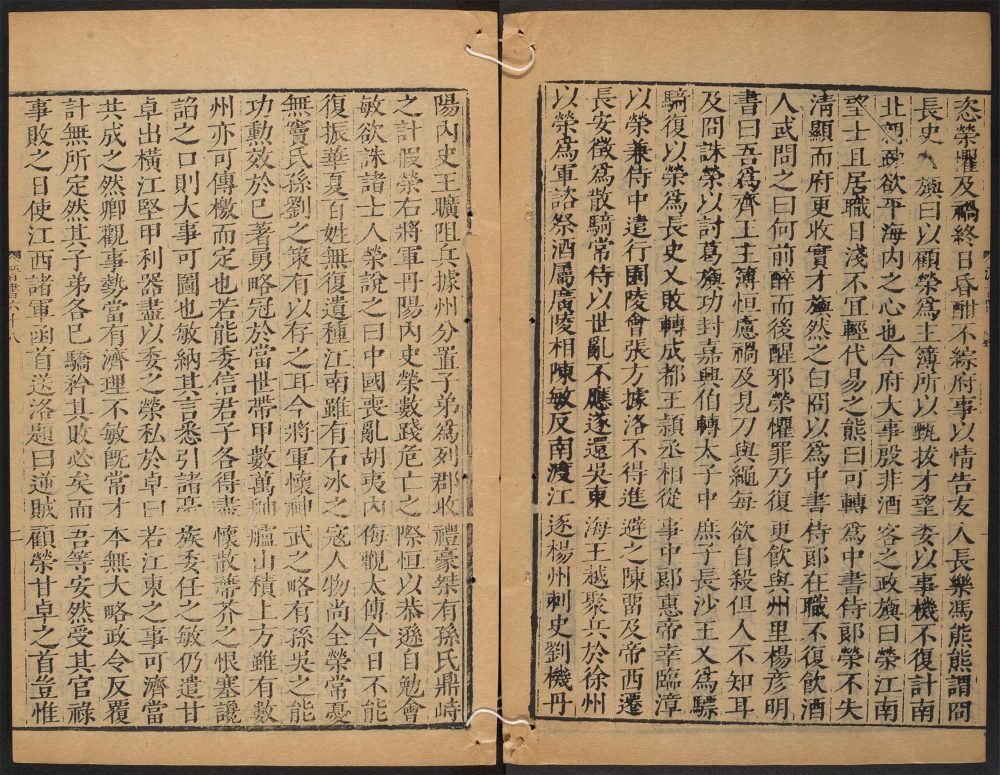 恣榮懼及禍終日昏酣不綜府事以情告友人長樂馮熊熊謂冏
長史旟曰以顧榮爲主簿所以甄拔才望委以事機不復計南
北欲平海内之心也今府大事殷非酒客之政旟曰榮江南
望士且居職日淺不宜輕代易之熊曰可轉爲中書侍郎榮不失
清顯而府更收實才旟然之白冏以爲中書侍郎在職不復飲酒
人武問之曰何前醉而後醒邪榮懼罪乃復更飲與州里楊彦明
書曰吾爲齊王主簿恒慮禍及見刀與繩每欲自殺但人不知耳
及冏誅榮以討葛旟功封嘉興伯轉太子中庶子長沙王乂爲驃
騎復以榮爲長史乂敗轉成都王穎丞相從事中郎惠帝幸臨漳
以榮兼侍中遣行園陵會張方據洛不得進避之陳留及帝西遷
長安徵爲散騎常侍以世亂不應遂還吳東海王越聚兵於徐州
以榮爲軍諮祭酒屬廣陵相陳敏反南渡江逐楊州刺史劉機丹
陽内史王曠阻兵據州分置子弟爲列郡收禮豪桀有孫氏鼎峙
之計假榮右將軍丹陽内史榮數踐危亡之際恒以恭遜自勉會
敏欲誅諸士人榮說之曰中國喪亂胡夷内侮觀太傅今日不能
復振華夏百姓無復遺種江南雖有石冰之寇人物尚全榮常憂
無竇氏孫劉之策有以存之耳今將軍懷神武之略有孫吳之能
功勳效於已著勇略冠於當世帶甲數萬舳艫山積上方雖有數
州亦可傳檄而定也若能委信君子各得盡懷散蔕芥之恨塞讒
諂之口則大事可圖也敏納其言悉引諸豪族委任之敏仍遣甘
卓出橫江堅甲利器盡以委之榮私於卓曰若江東之事可濟當
共成之然卿觀事勢當有濟理不敏既常才本無大略政令反覆
計無所定然其子弟各已驕矜其敗必矣而吾等安然受其官祿
事敗之日使江西諸軍函首送洛題曰逆賊顧榮甘卓之首豈惟